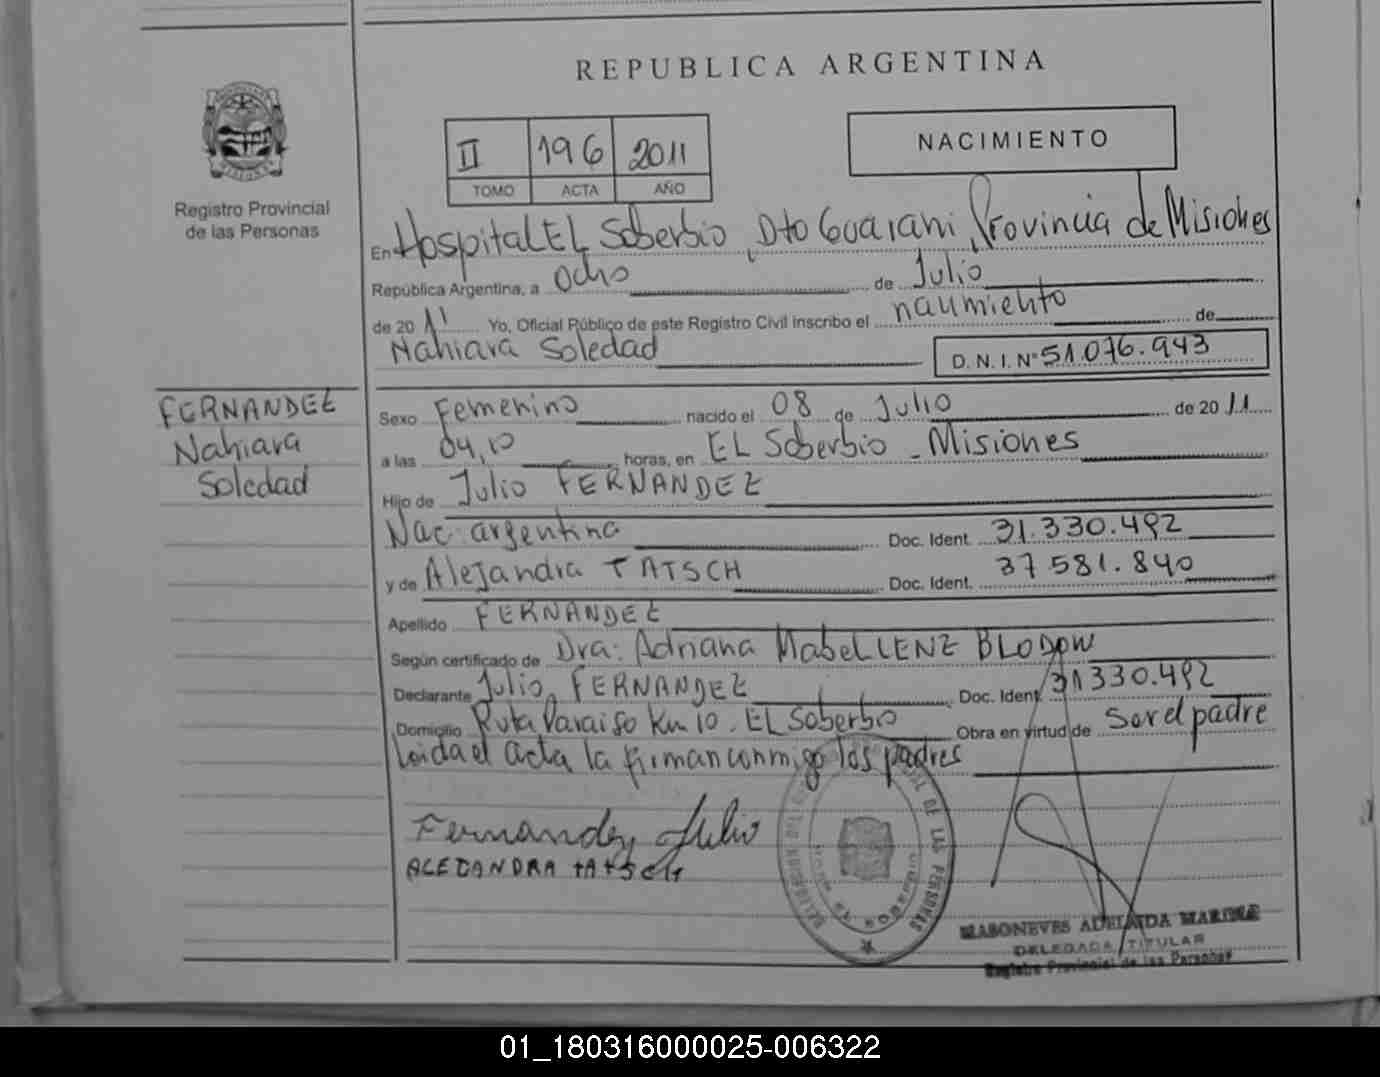 REPUBLICA ARGENTINA
NACIMIENTO
II 196 2011
TOMO ACTA AÑO
Registro Provincial
de las Personas
En Hospital EL Soberbio, Dto Guarani, Provincia de Misiones
República Argentina, a Ocho de Julio
de 2011 Yo, Oficial Público de este Registro Civil inscribo el nacimiento de
Nahiara Soledad D. N. I. Nº 51.076.943
FERNANDEZ
Nahiara
Soledad
Sexo Femenino nacido el 08 de Julio de 2011
a las 04,10 horas, en EL Soberbio - Misiones
Hijo de Julio FERNANDEZ
Nac. argentina Doc. Ident. 31.330.492
y de Alejandra TATSCH Doc. Ident. 37.581.840
Apellido FERNANDEZ
Según certificado de Dra: Adriana Mabel LENZ BLODOW
Declarante Julio FERNANDEZ Doc. Ident. 31330.492
Domicilio Ruta Paraiso Km 10. EL Soberbio Obra en virtud de ser el padre
Leida el acta la firman conmigo los padres
Fernandez Julio
ALEJANDRA TATSCH
DE LAS PERSONAS
MASONEVES ADELAIDA MARINE
DELEGADA TITULAR
Registro Provincial de las Personas
01_180316000025-006322